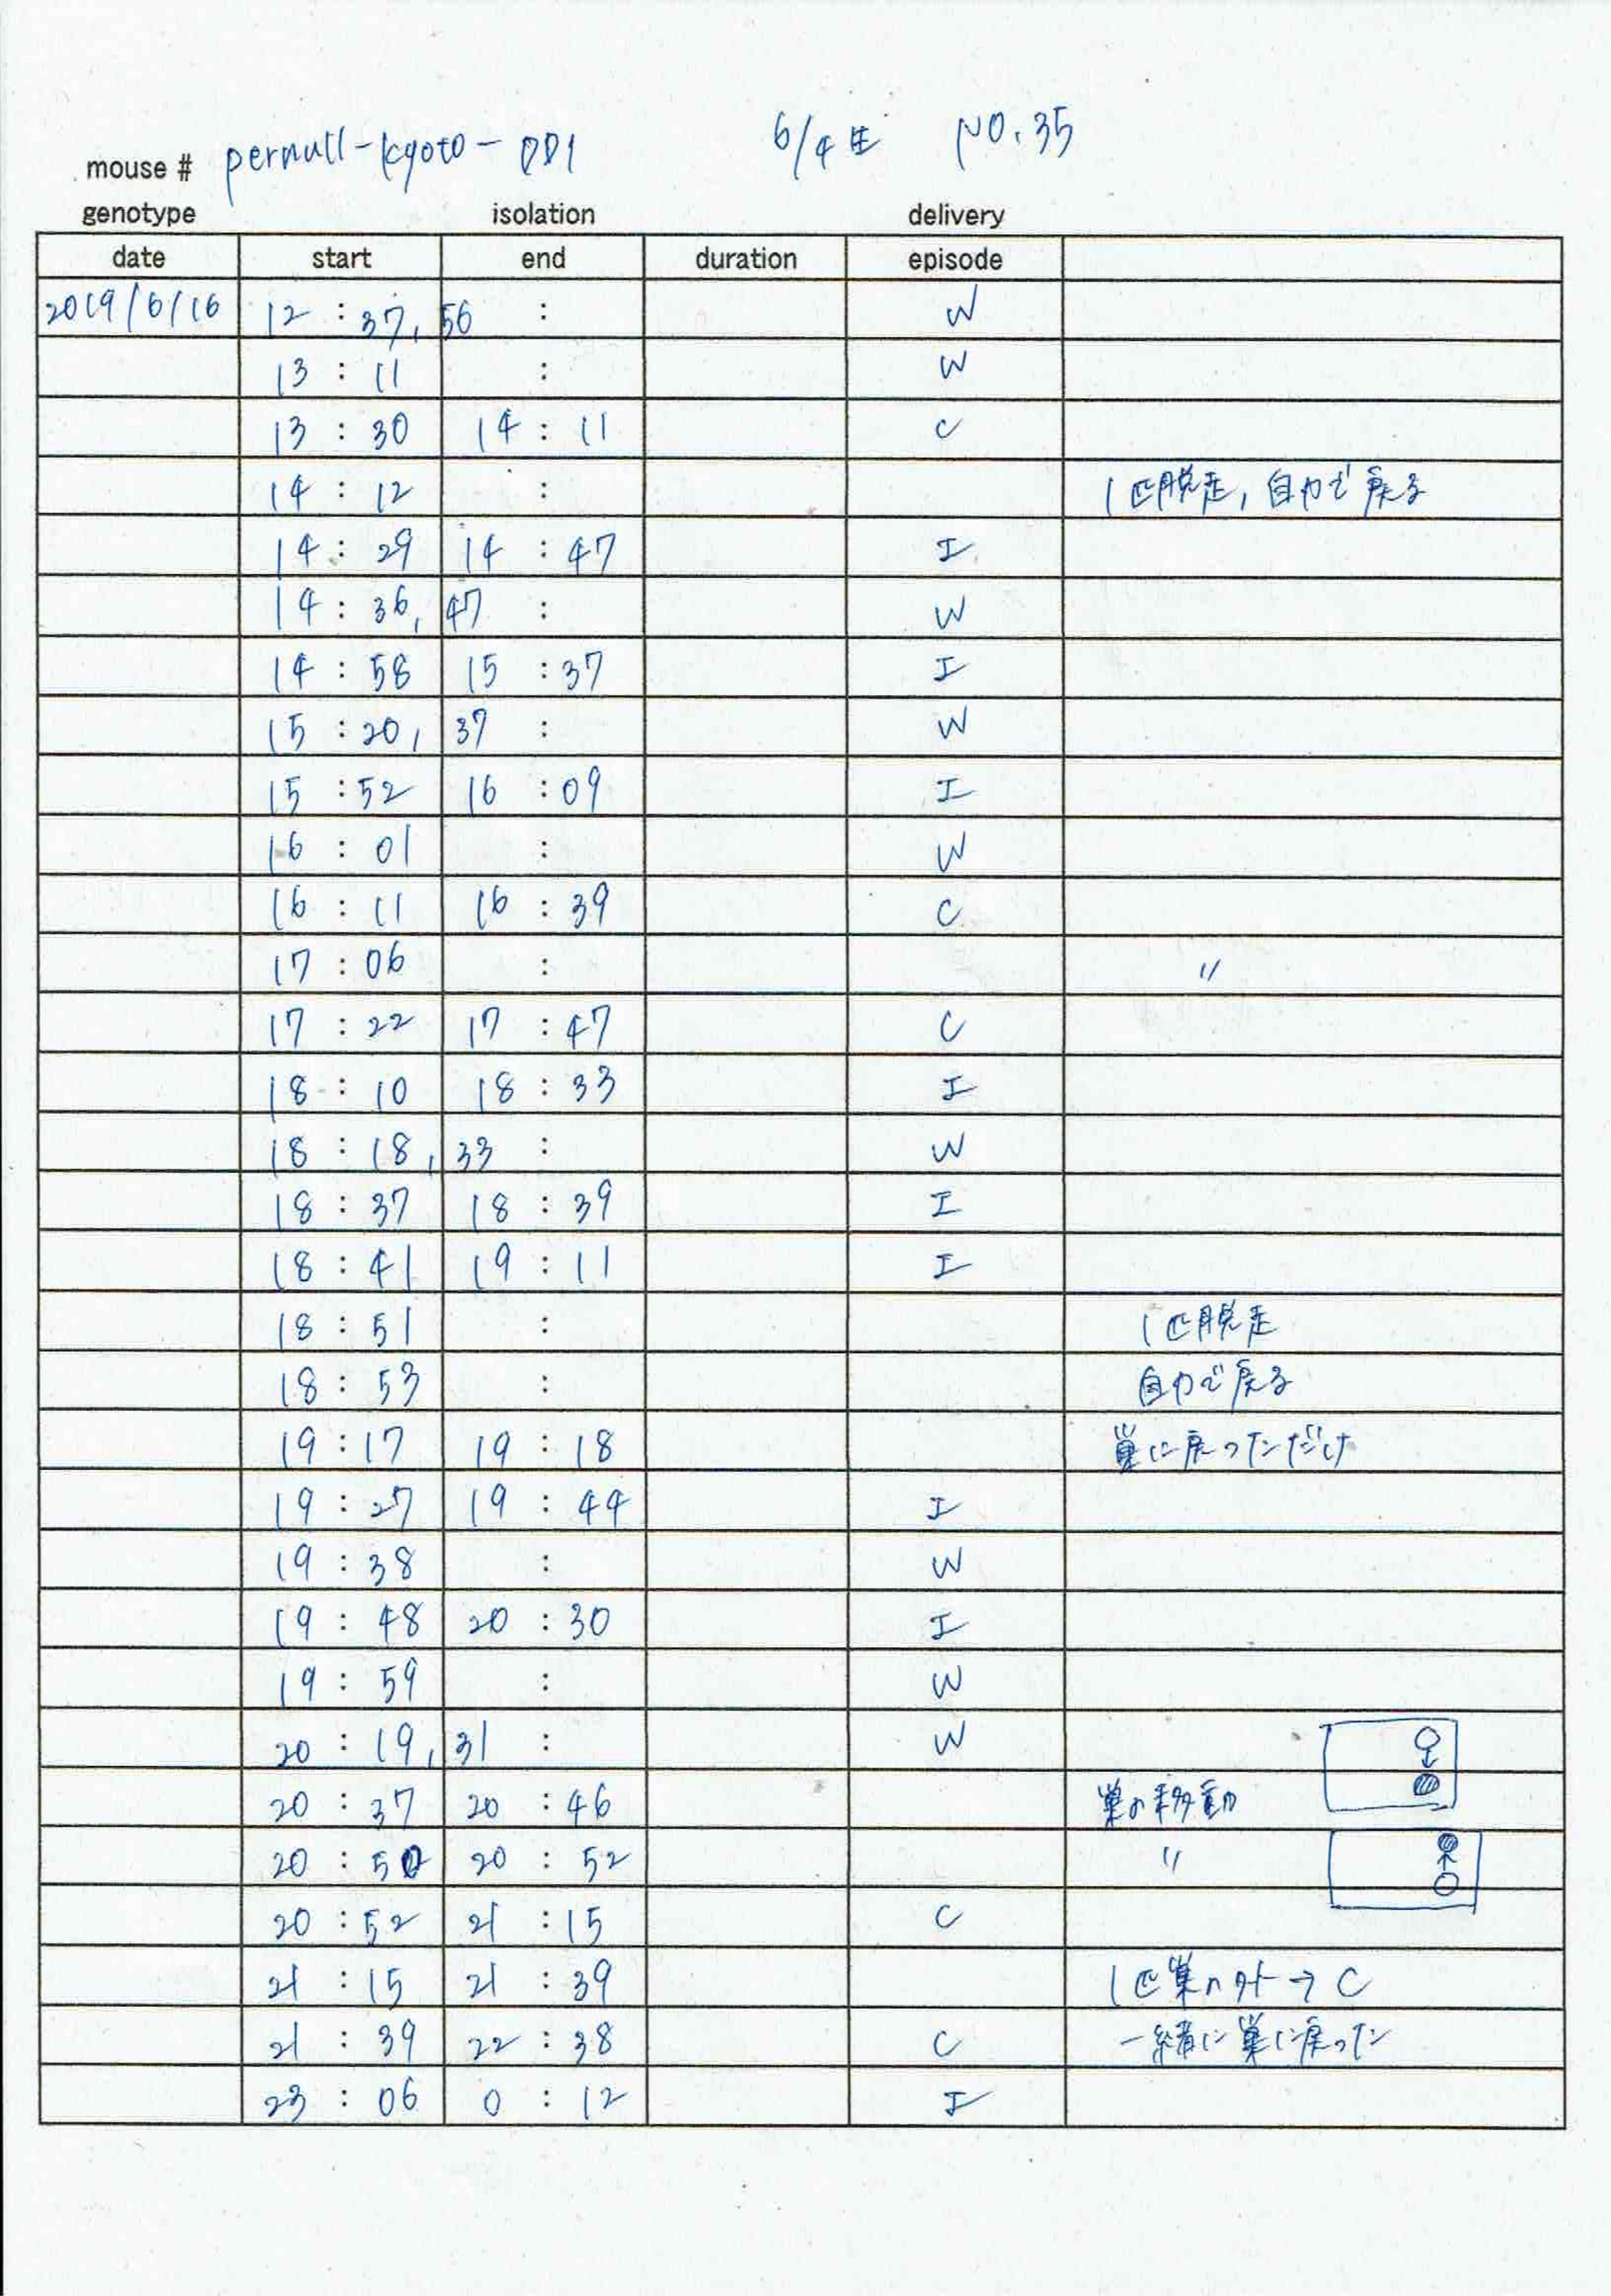 6/4生 NO.35
mouse # pernull-kyoto-001
genotype isolation delivery
date start end duration episode
2019/6/16 12:37,56 : W
13:11 : W
13:30 14:11 C
14:12 : 1匹脱走,自力で戻る
14:29 14:47 I
14:36,47 : W
14:58 15:37 I
15:20,37 : W
15:52 16:09 I
16:01 : W
16:11 16:39 C
17:06 : 〃
17:22 17:47 C
18:10 18:33 I
18:18,33 : W
18:37 18:39 I
18:41 19:11 I
18:51 : 1匹脱走
18:53 : 自力で戻る
19:17 19:18 巣に戻っただけ
19:27 19:44 I
19:38 : W
19:48 20:30 I
19:59 : W
20:19,31 : W
20:37 20:46 巣の移動
20:50 20:52 〃
20:52 21:15 C
21:15 21:39 1匹巣の外→C
21:39 22:38 C 一緒に巣に戻った
23:06 0:12 I